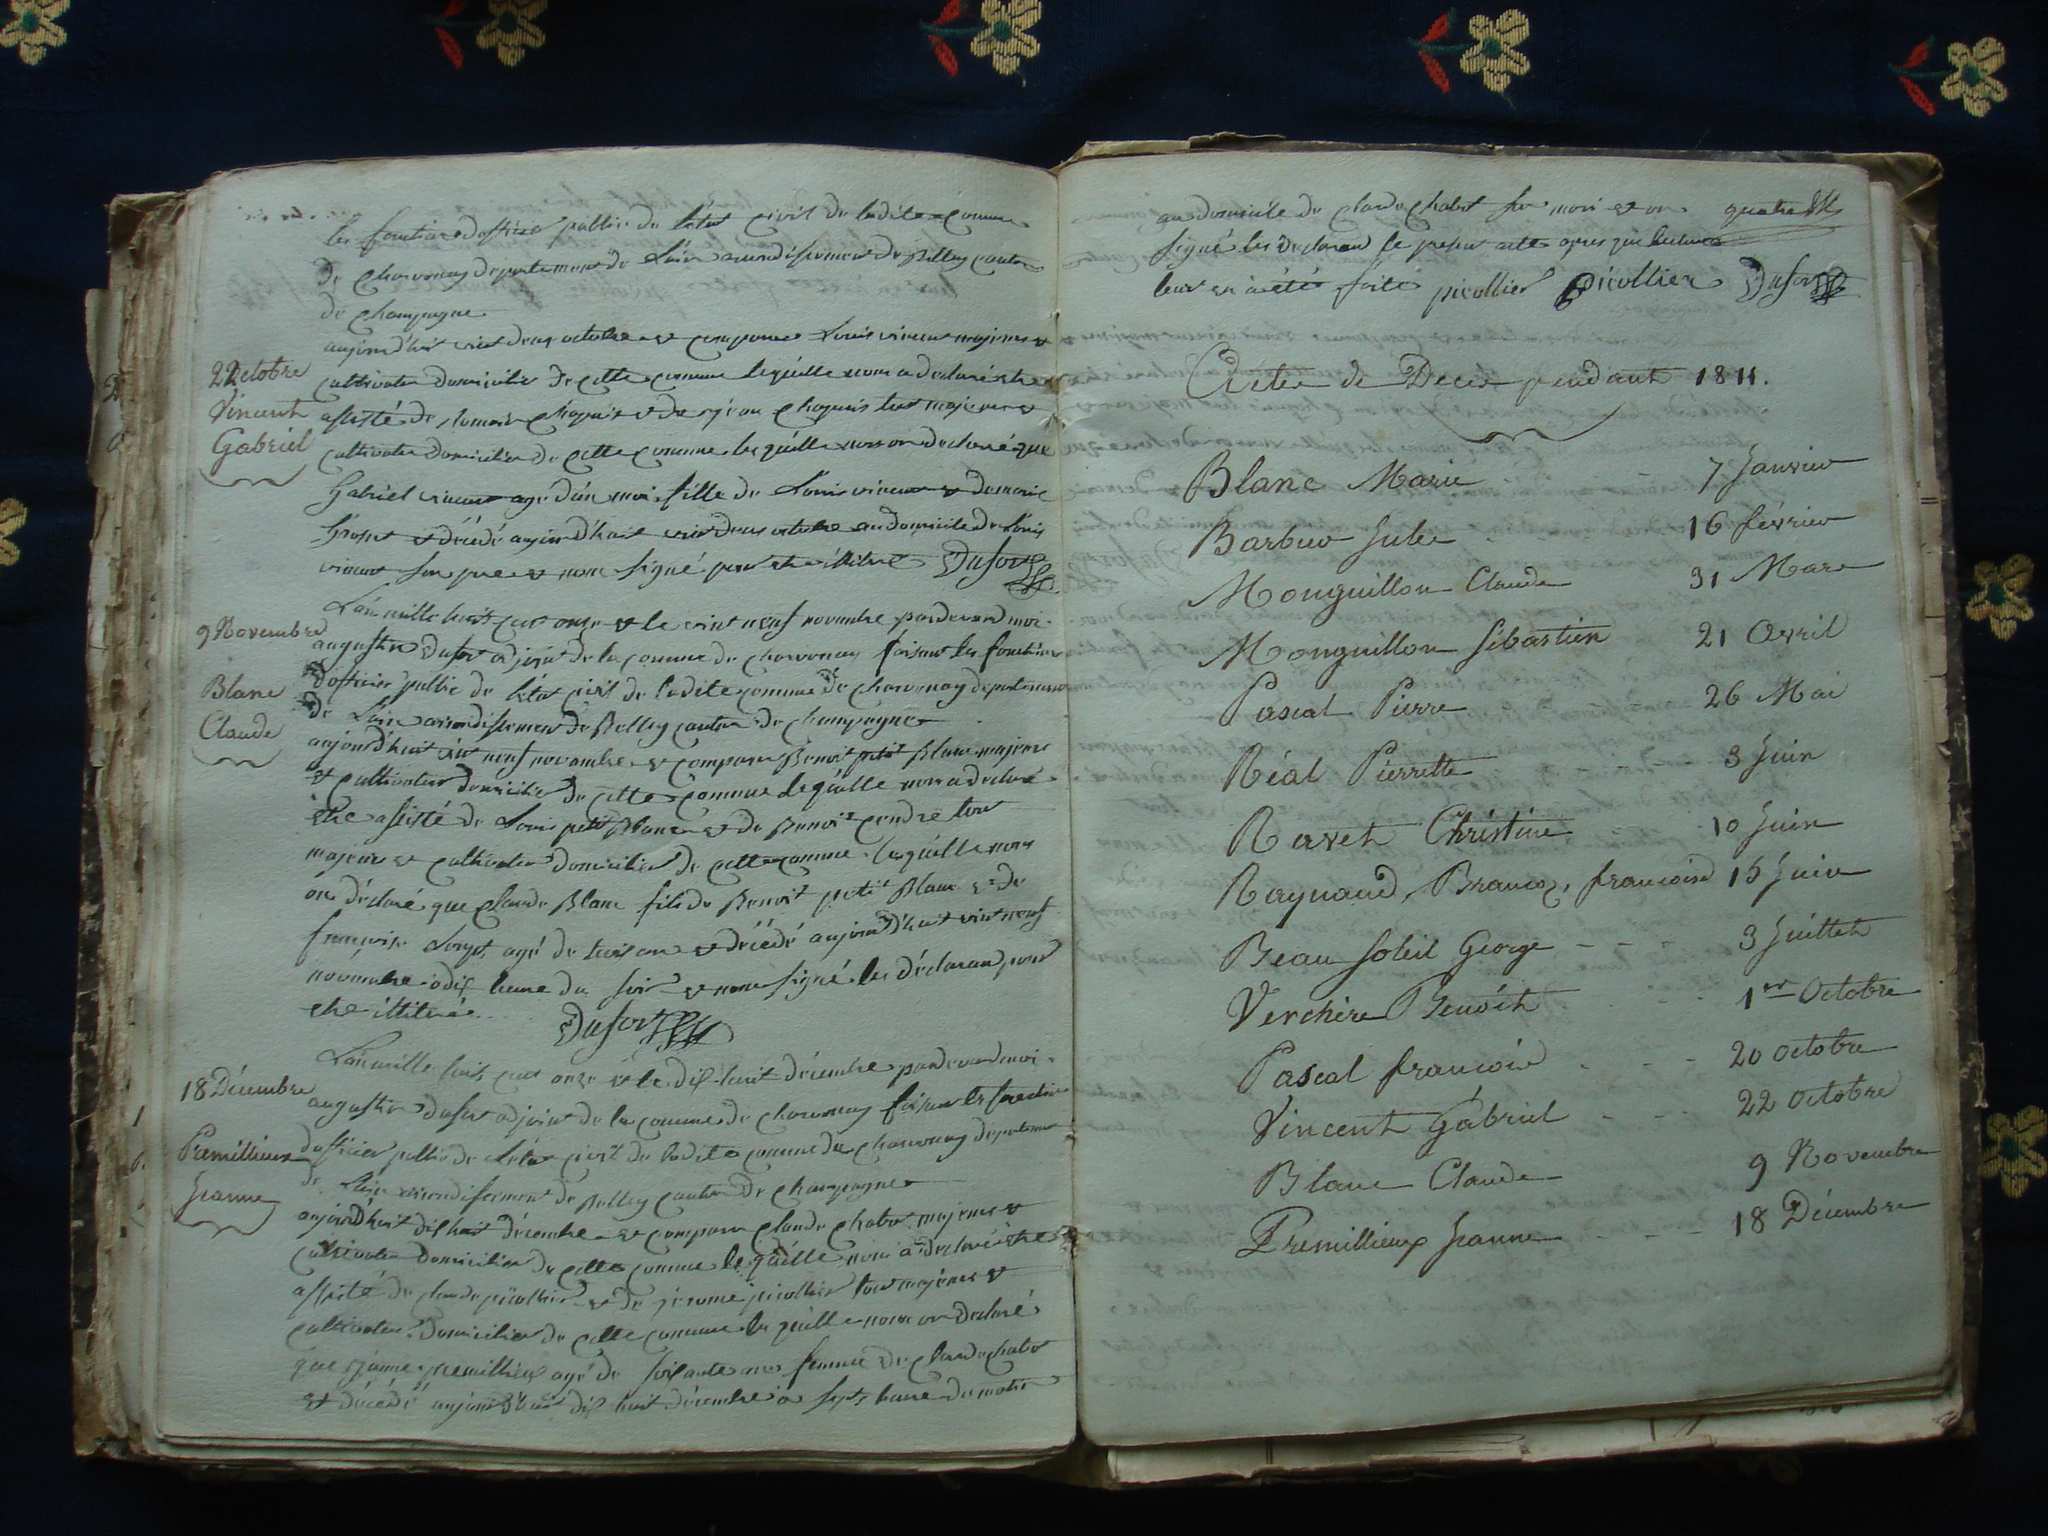 les fonctions d'officier public de l'état civil de ladite commune
de Charvonay departement de Lain arrondissement de Belley canton
de Champagne
aujourd'huit vint deux octobre et comparu Louis vincent majeur et
22 octobre
Vincent
Gabriel
cultivateur domicilier de cette commune lequelle nous a declaré etre
assisté de et de tout majeur et
cultivateur domicilier de cette commune les quelle nous on declaré que
Gabriel vincent agé d'un moi fille de Louis vincent et de marie
et décédé aujourd'huit vint deux octobre au domicile de Louis
vincent son pere et non signé pour etre illitéré Dufort
9 Novembre
Blanc
Claude
L'an mille huit cent onze et le vint neuf novembre pardevand moi
augustin Dufort adjoint de la comune de Charvonay faisant les fonctions
d'officier public de l'état civil de ladite comune de Charvonay departement
de Lain arrondissement de Belley canton de Champagne
aujourd'huit vint neuf novembre et comparu Benoit petit Blanc majeur
et cultivateur domicilier de cette comune lequelle nous a declaré
etre assisté de Louis petit Blanc et de Benoit tout
majeur et cultivateur domicilier de cette comune lesquelle nous
on déclaré que Claude Blanc fils de Benoit petit Blanc et de
françoise agé de trois ans et décédé aujourd'huit vint neuf
novembre a dix heure du soir et non signé les déclarand pour
etre illitéré
Dufort
18 Décembre
Premillieux
Jeanne
L'an mille huit cent onze et le dix huit décembre pardevand moi
augustin Dufort adjoint de la comune de Charvonay faisant les fonction
d'officier public de l'état civil de ladite comune de Charvonay departement
de Lain arrondissement de Belley canton de Champagne
aujourd'huit dix huit décembre et comparu Claude Chabot majeur et
cultivateur domicilier de cette comune lequelle nous a declaré etre
assisté de Claude picollier et de jerome picollier tout majeur et
cultivateur domicilier de cette comune les quelle nous on declaré
que jeanne premillieu agé de soixante ans femme de Claude Chabot
et décédé aujourd'huit dix huit décembre a sept heure du matin
au domicile de Claude Chabot son mari et on
signé les declarand le present acte apres que lecture
leur en a été faite picollier picollier Dufort
Actes de Décès pendant 1811.
Blanc Marie - 7 Janvier
Barbier Julie - 16 février
Monguillon Claude 31 Mars
Monguillon Sébastien 21 Avril
Pascal Pierre 26 Mai
Réal Pierrette - - 3 Juin
Ravet Christine 10 Juin
Raynaud, françoise 15 Juin
Beau Soleil George - - - 3 Juillet
Verchère Benoît - - 1er Octobre
Pascal françois - - - 20 octobre
Vincent Gabriel - - - 22 Octobre
Blanc Claude 9 Novembre
Premillieux Jeanne - - - 18 Décembre